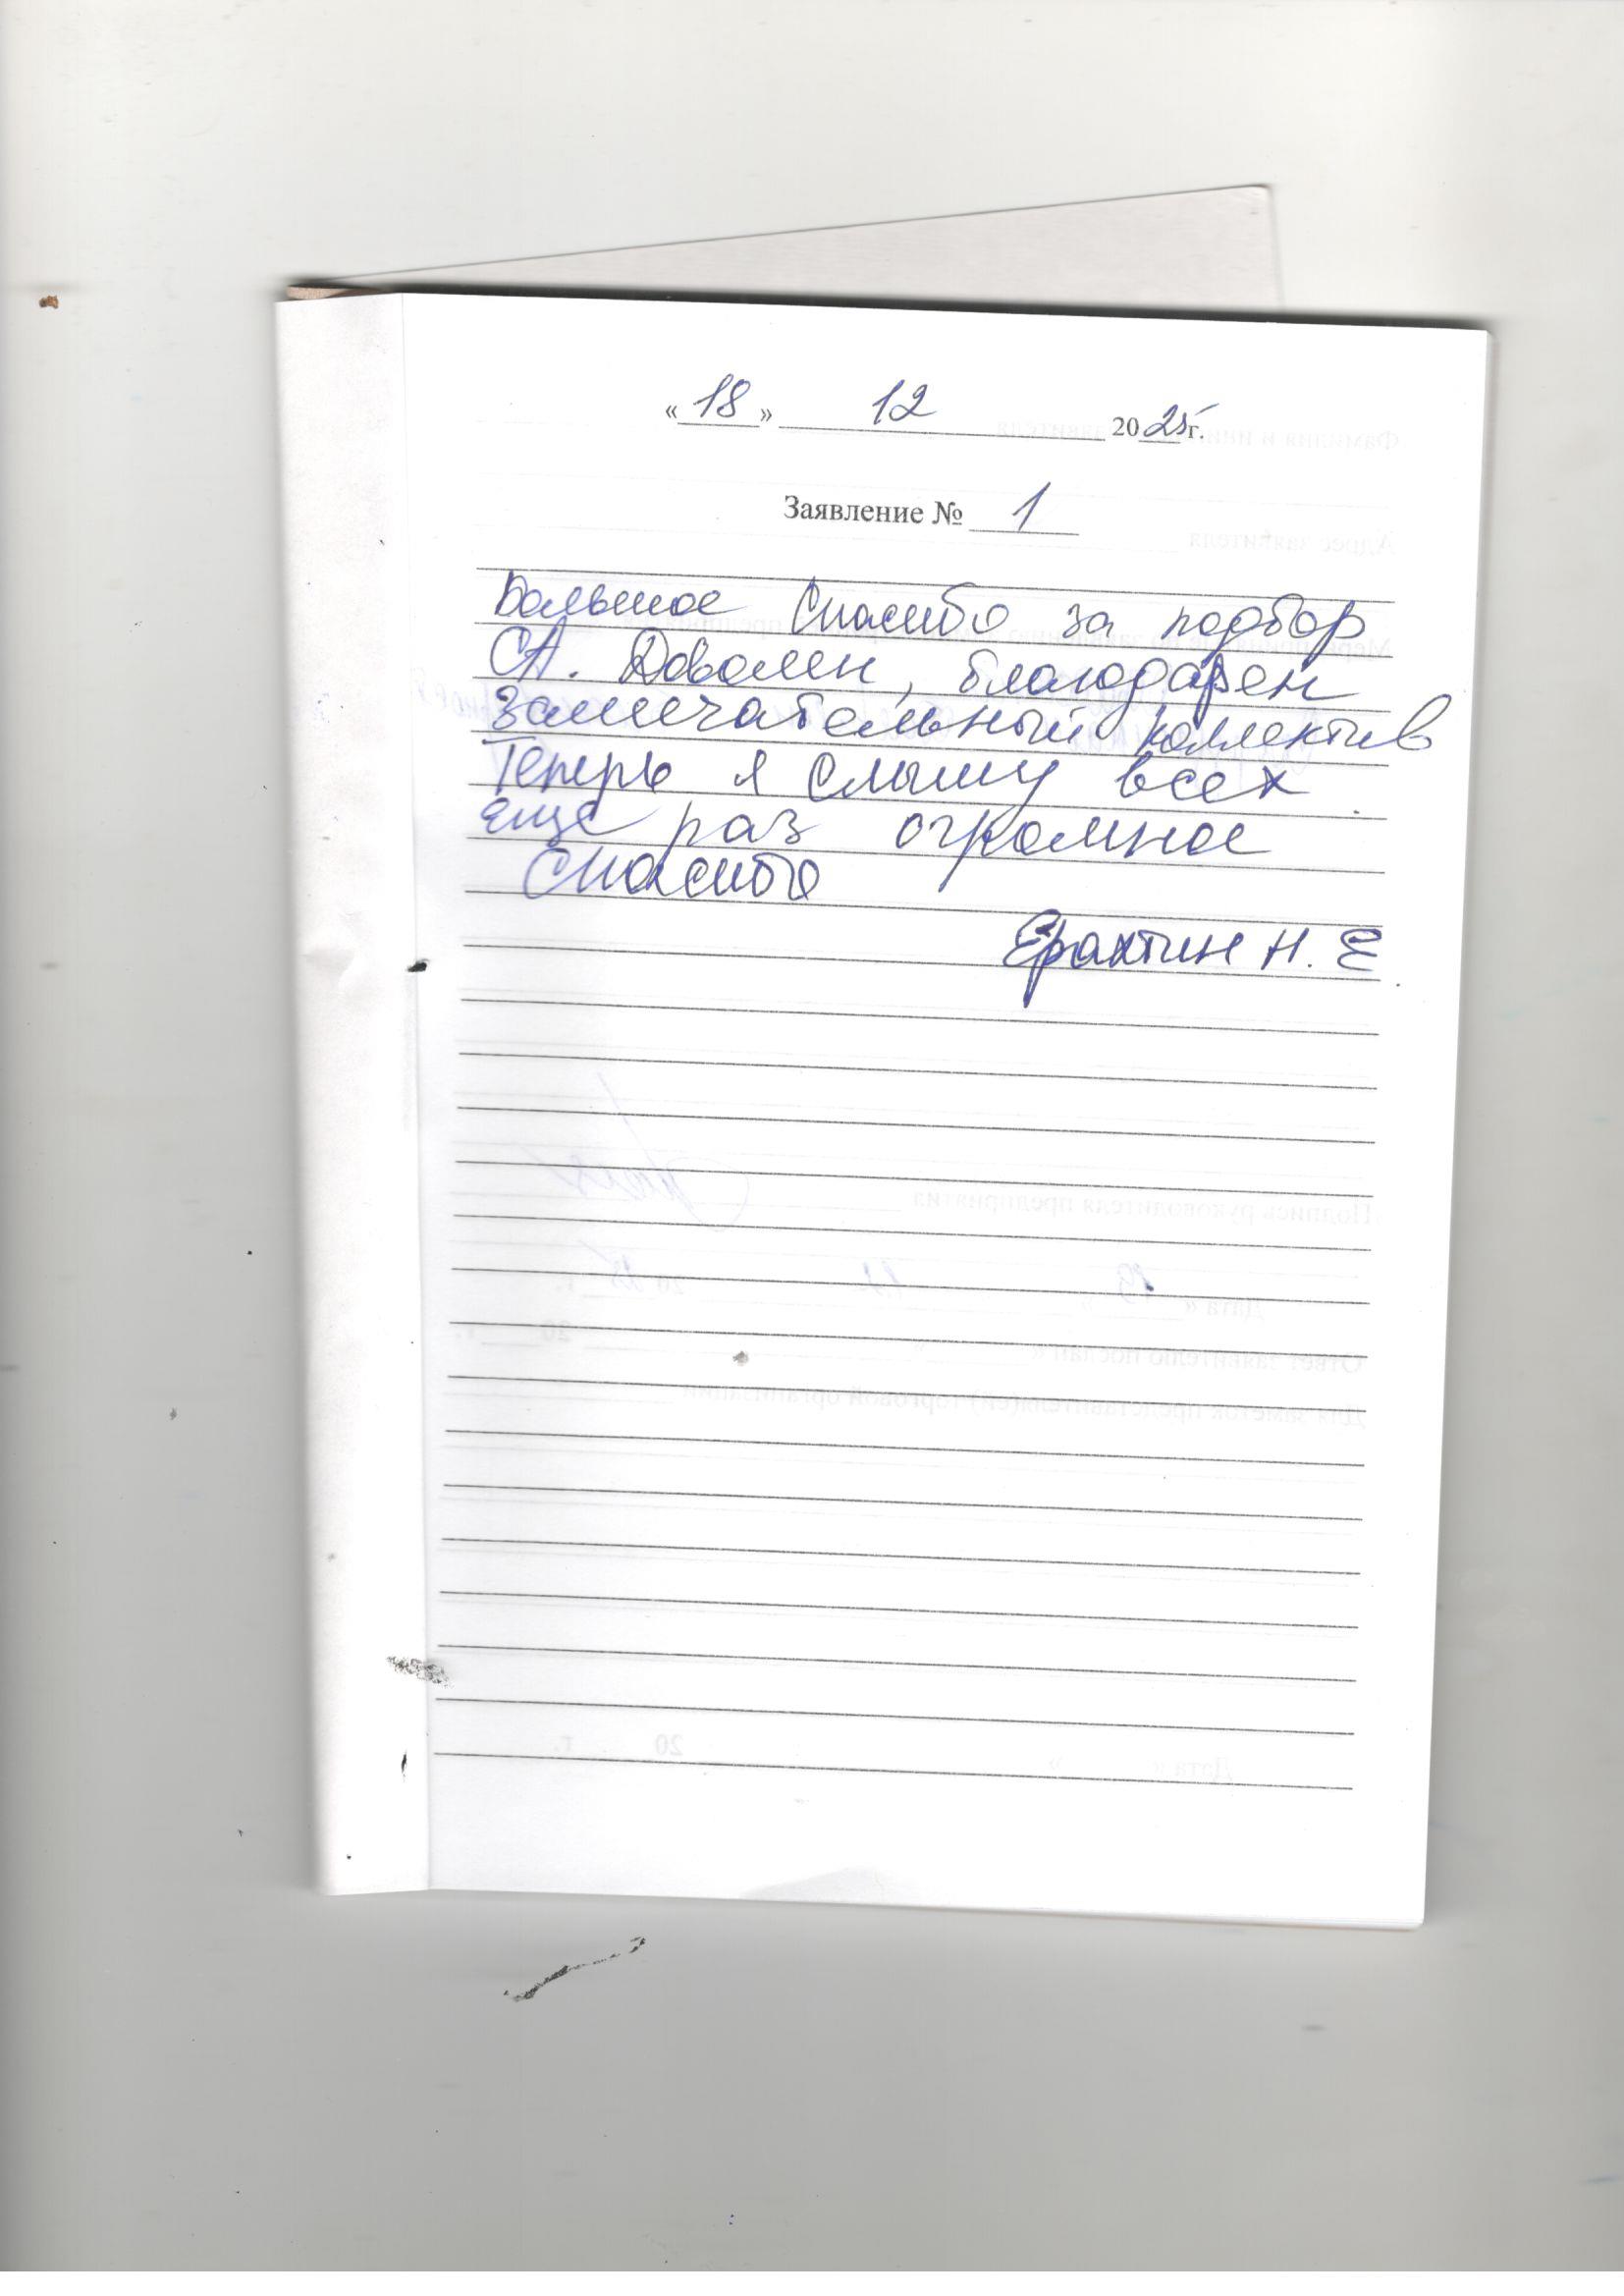 «18» 12 2025г.
Заявление № 1
Большое спасибо за подбор
СА. Доволен, благодарен
Замечательный коллектив
Теперь я слышу всех
еще раз огромное
Спасибо
Ерахтин Н. Е